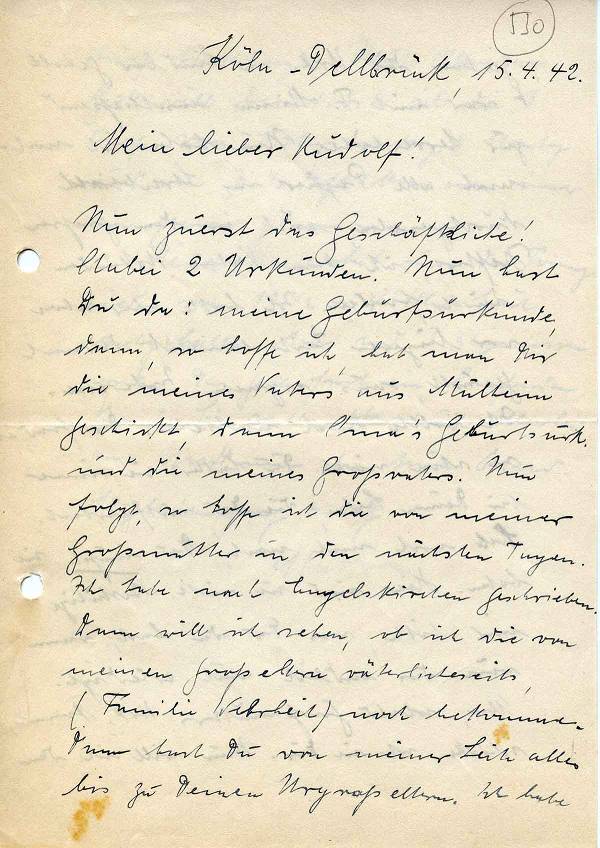 130
Köln-Dellbrück, 15.4.42.
Mein lieber Rudolf!
Nun zuerst das Geschäftliche!
Anbei 2 Urkunden. Nun hast
Du da: meine Geburtsurkunde,
dann, so hoffe ich, hat man Dir
die meines Vaters aus Mülheim
geschickt, dann Oma's Geburtsurk.
und die meines Großvaters. Nun
folgt, so hoffe ich die von meiner
Großmutter in den nächsten Tagen.
Ich habe nach Engelskirchen geschrieben.
Dann will ich sehen, ob ich die von
meinen Großeltern väterlicheseits,
(Familie Wehrheit) noch bekomme.
Dann hast Du von meiner Seite alles
bis zu Deinen Urgroßeltern. Ich habe